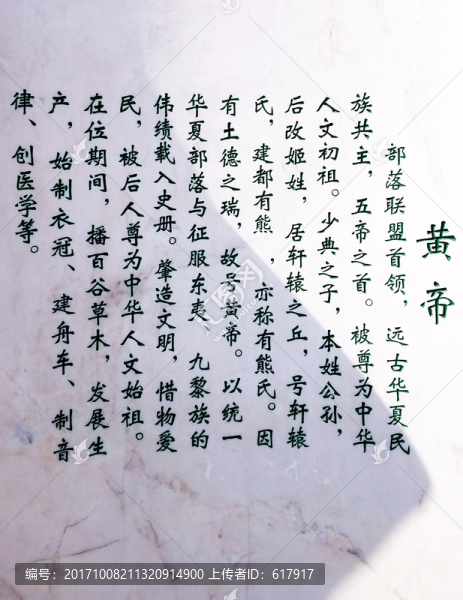 黄帝
部落联盟首领，远古华夏民
族共主，五帝之首。被尊为中华
人文初祖。少典之子，本姓公孙，
后改姬姓，居轩辕之丘，号轩辕
氏，建都有熊，亦称有熊氏。因
有土德之瑞，故号黄帝。以统一
华夏部落与征服东夷 九黎族的
伟绩载入史册。肇造文明，惜物爱
民，被后人尊为中华人文始祖。
在位期间，播百谷草木，发展生
产，始制衣冠、建舟车、制音
律、创医学等。
编号：20171008211320914900 上传者ID：617917